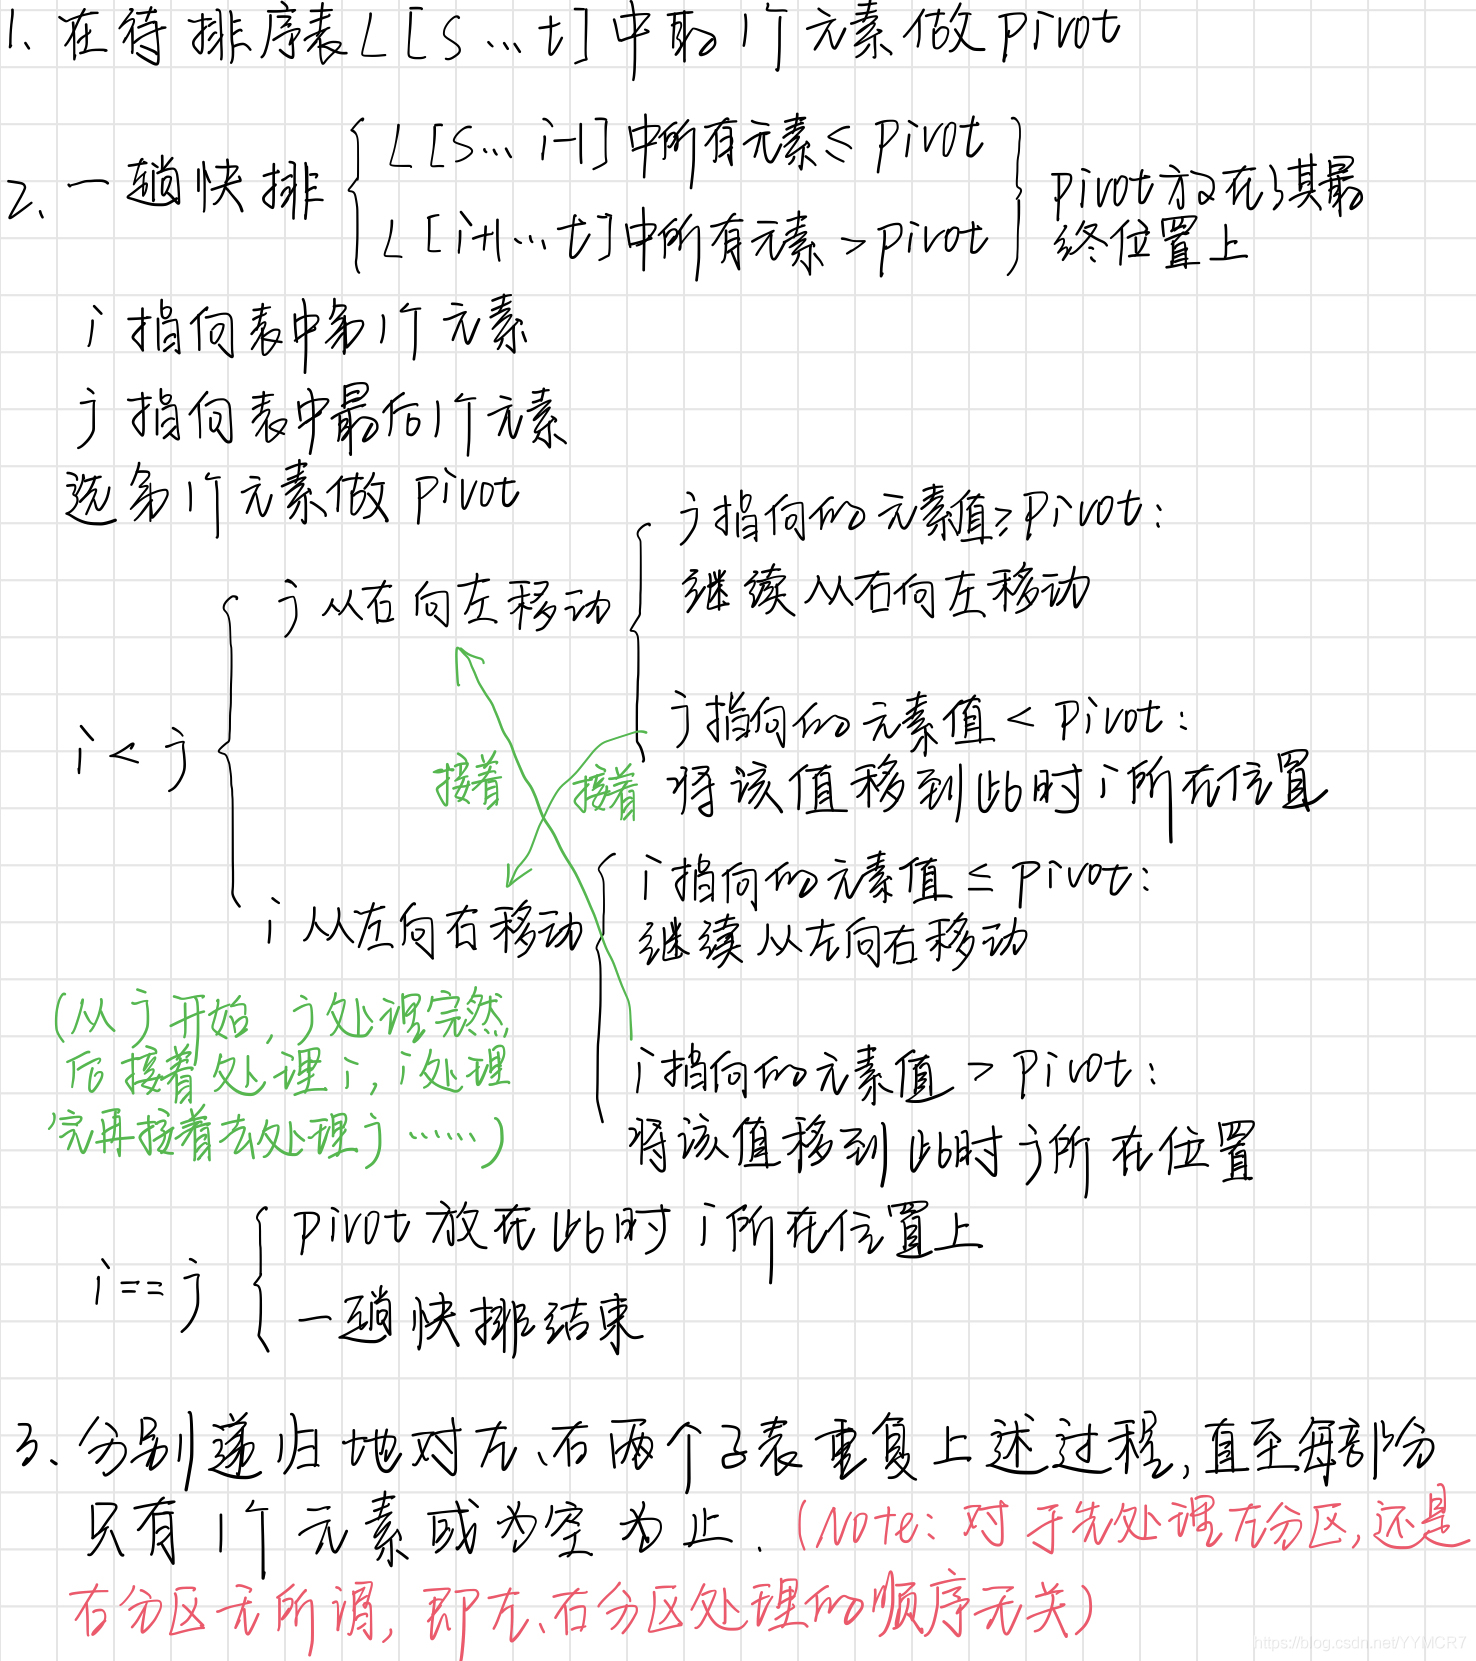 1、在待排序表L[S...t]中取1个元素做pivot
2、一趟快排
L[S... i-1]中所有元素≤pivot
L[i+1...t]中所有元素>pivot
pivot放在了其最
终位置上
i指向表中第1个元素
j指向表中最后1个元素
选第1个元素做pivot
i<j
j从右向左移动
j指向的元素值≥pivot:
继续从右向左移动
j指向的元素值<pivot:
将该值移到此时i所在位置
接着
接着
i从左向右移动
i指向的元素值≤pivot:
继续从左向右移动
i指向的元素值>pivot:
将该值移到此时j所在位置
(从j开始,j处理完然
后接着处理i,i处理
完再接着去处理j……)
i==j
pivot放在此时i所在位置上
一趟快排结束
3、分别递归地对左、右两个子表重复上述过程,直至每部分
只有1个元素或为空为止.(Note:对于先处理左分区,还是
右分区无所谓,即左、右分区处理的顺序无关)
https://blog.csdn.net/YYMCR7